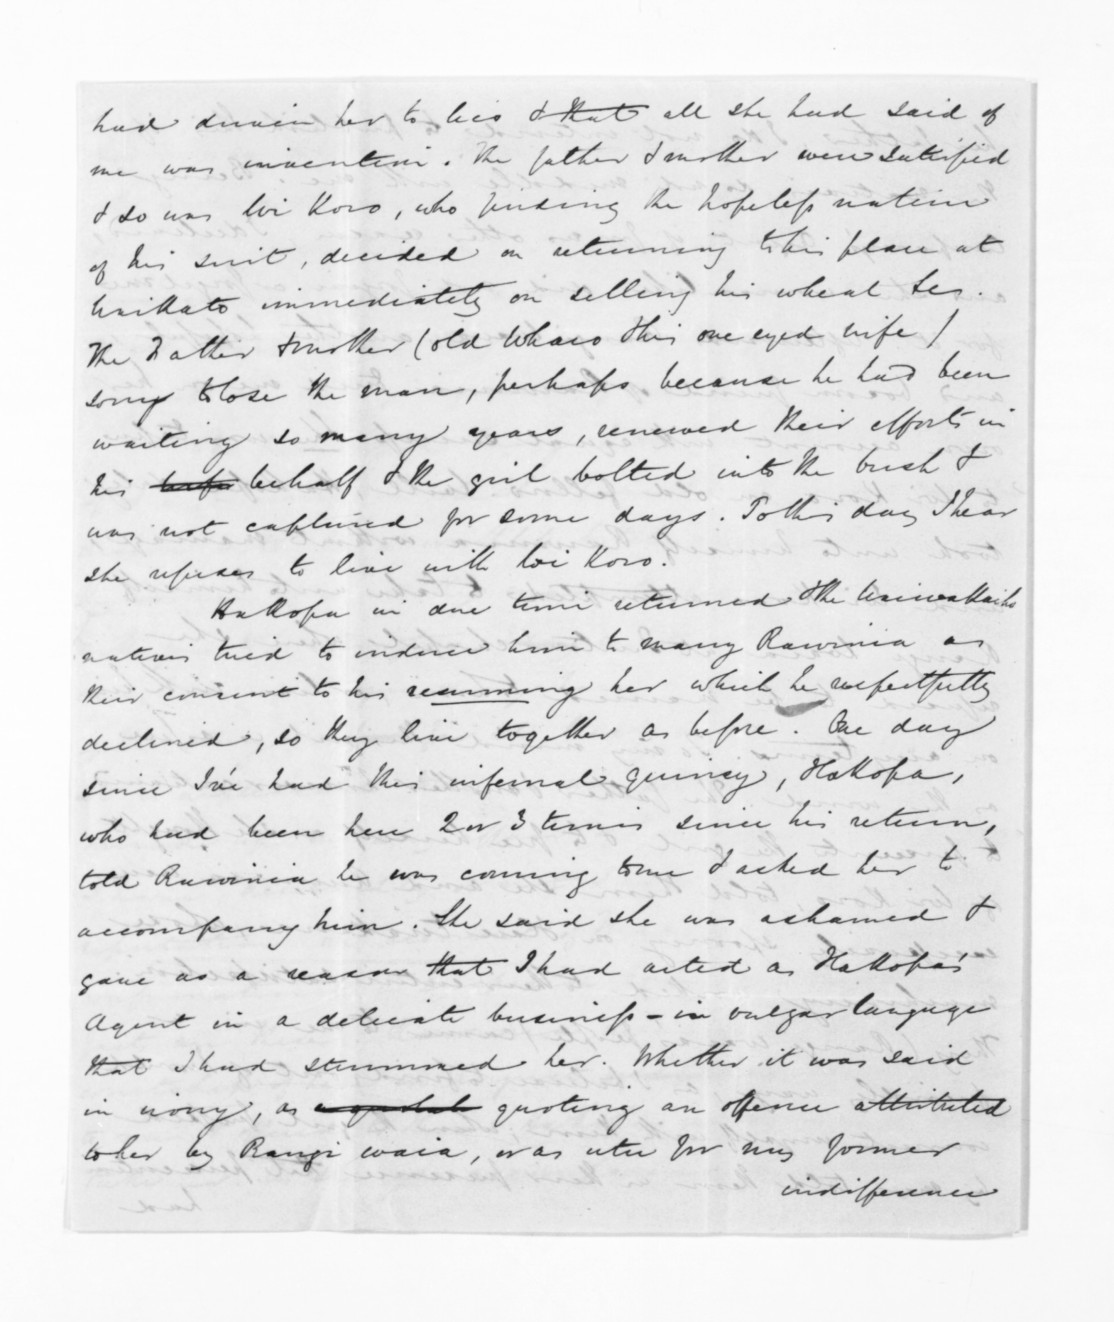 had driven her to lies & that all she had said of
me was invention. The father & mother were satisfied
& so was Wi Koro, who finding the hopeless nature
of his suit, decided on returning to his place at
Waikato immediately on selling his wheat &c.
The Father & mother (old Wharo & his one eyed wife)
sorry to lose the man, perhaps because he had been
waiting so many years, renewed their efforts in
his behalf & the girl bolted into the bush &
was not captured for some days. To this day I hear
she refuses to live with Wi Koro.
Hakopa in due time returned & the
natives tried to induce him to marry Rawinia as
their consent to his resuming her which he respectfully
declined, so they live together as before. One day
since I've had this infernal quinsy, Hakopa,
who had been here 2 or 3 times since his return,
told Rawinia he was coming to me & asked her to
accompany him. She said she was ashamed &
gave as a reason that I had acted as Hakopa's
Agent in a delicate business - in vulgar language
that I had strummed her. Whether it was said
in irony, as quoting an offence attributed
to her by Rangi waia, or as utu for my former
indifference